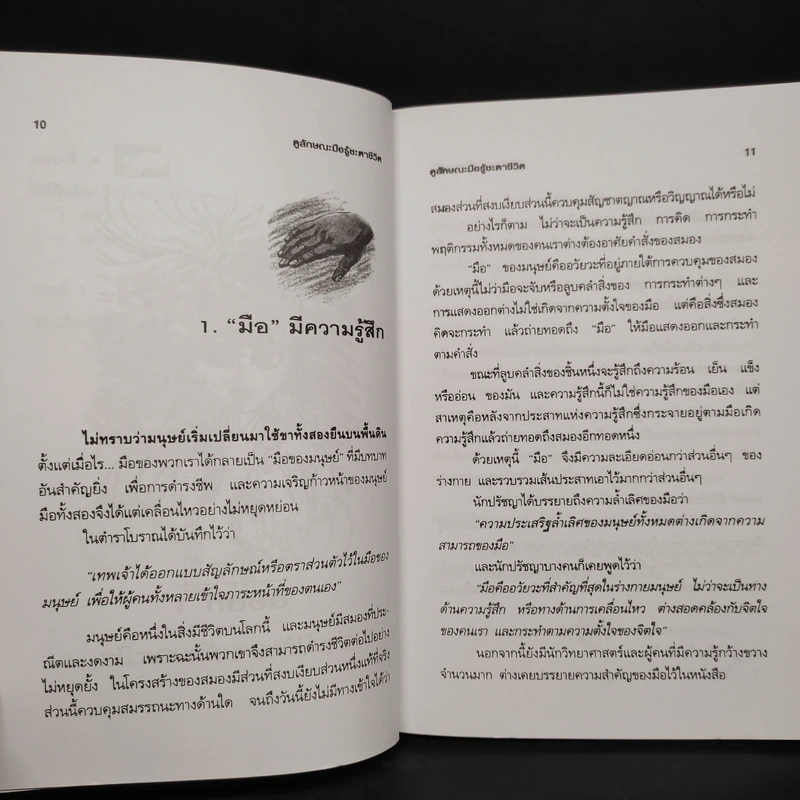 10
ดูลักษณะมือรู้ชะตาชีวิต
1. “มือ” มีความรู้สึก
ไม่ทราบว่ามนุษย์เริ่มเปลี่ยนมาใช้ขาทั้งสองยืนบนพื้นดิน
ตั้งแต่เมื่อไร... มือของพวกเราได้กลายเป็น “มือของมนุษย์” ที่มีบทบาท
อันสำคัญยิ่ง เพื่อการดำรงชีพ และความเจริญก้าวหน้าของมนุษย์
มือทั้งสองจึงได้แต่เคลื่อนไหวอย่างไม่หยุดหย่อน
ในตำราโบราณได้บันทึกไว้ว่า
“เทพเจ้าได้ออกแบบสัญลักษณ์หรือตราส่วนตัวไว้ในมือของ
มนุษย์ เพื่อให้ผู้คนทั้งหลายเข้าใจภาระหน้าที่ของตนเอง”
มนุษย์คือหนึ่งในสิ่งมีชีวิตบนโลกนี้ และมนุษย์มีสมองที่ประ-
ณีตและงดงาม เพราะฉะนั้นพวกเขาจึงสามารถดำรงชีวิตต่อไปอย่าง
ไม่หยุดยั้ง ในโครงสร้างของสมองมีส่วนที่สงบเงียบส่วนหนึ่งแท้ที่จริง
ส่วนนี้ควบคุมสมรรถนะทางด้านใด จนถึงวันนี้ยังไม่มีทางเข้าใจได้ว่า
11
ดูลักษณะมือรู้ชะตาชีวิต
สมองส่วนที่สงบเงียบส่วนนี้ควบคุมสัญชาตญาณหรือวิญญาณได้หรือไม่
อย่างไรก็ตาม ไม่ว่าจะเป็นความรู้สึก การคิด การกระทำ
พฤติกรรมทั้งหมดของคนเราต่างต้องอาศัยคำสั่งของสมอง
“มือ” ของมนุษย์คืออวัยวะที่อยู่ภายใต้การควบคุมของสมอง
ด้วยเหตุนี้ไม่ว่ามือจะจับหรือลูบคลำสิ่งของ การกระทำต่างๆ และ
การแสดงออกต่างไม่ใช่เกิดจากความตั้งใจของมือ แต่คือสิ่งซึ่งสมอง
คิดจะกระทำ แล้วถ่ายทอดถึง “มือ” ให้มือแสดงออกและกระทำ
ตามคำสั่ง
ขณะที่ลูบคลำสิ่งของชิ้นหนึ่งจะรู้สึกถึงความร้อน เย็น แข็ง
หรืออ่อน ของมัน และความรู้สึกนี้ก็ไม่ใช่ความรู้สึกของมือเอง แต่
สาเหตุคือหลังจากประสาทแห่งความรู้สึกซึ่งกระจายอยู่ตามมือเกิด
ความรู้สึกแล้วถ่ายทอดถึงสมองอีกทอดหนึ่ง
ด้วยเหตุนี้ “มือ” จึงมีความละเอียดอ่อนกว่าส่วนอื่นๆ ของ
ร่างกาย และรวบรวมเส้นประสาทเอาไว้มากกว่าส่วนอื่นๆ
นักปรัชญาได้บรรยายถึงความล้ำเลิศของมือว่า
“ความประเสริฐล้ำเลิศของมนุษย์ทั้งหมดต่างเกิดจากความ
สามารถของมือ”
และนักปรัชญาบางคนก็เคยพูดไว้ว่า
“มือคืออวัยวะที่สำคัญที่สุดในร่างกายมนุษย์ ไม่ว่าจะเป็นทาง
ด้านความรู้สึก หรือทางด้านการเคลื่อนไหว ต่างสอดคล้องกับจิตใจ
ของคนเรา และกระทำตามความตั้งใจของจิตใจ”
นอกจากนี้ยังมีนักวิทยาศาสตร์และผู้คนที่มีความรู้กว้างขวาง
จำนวนมาก ต่างเคยบรรยายความสำคัญของมือไว้ในหนังสือ